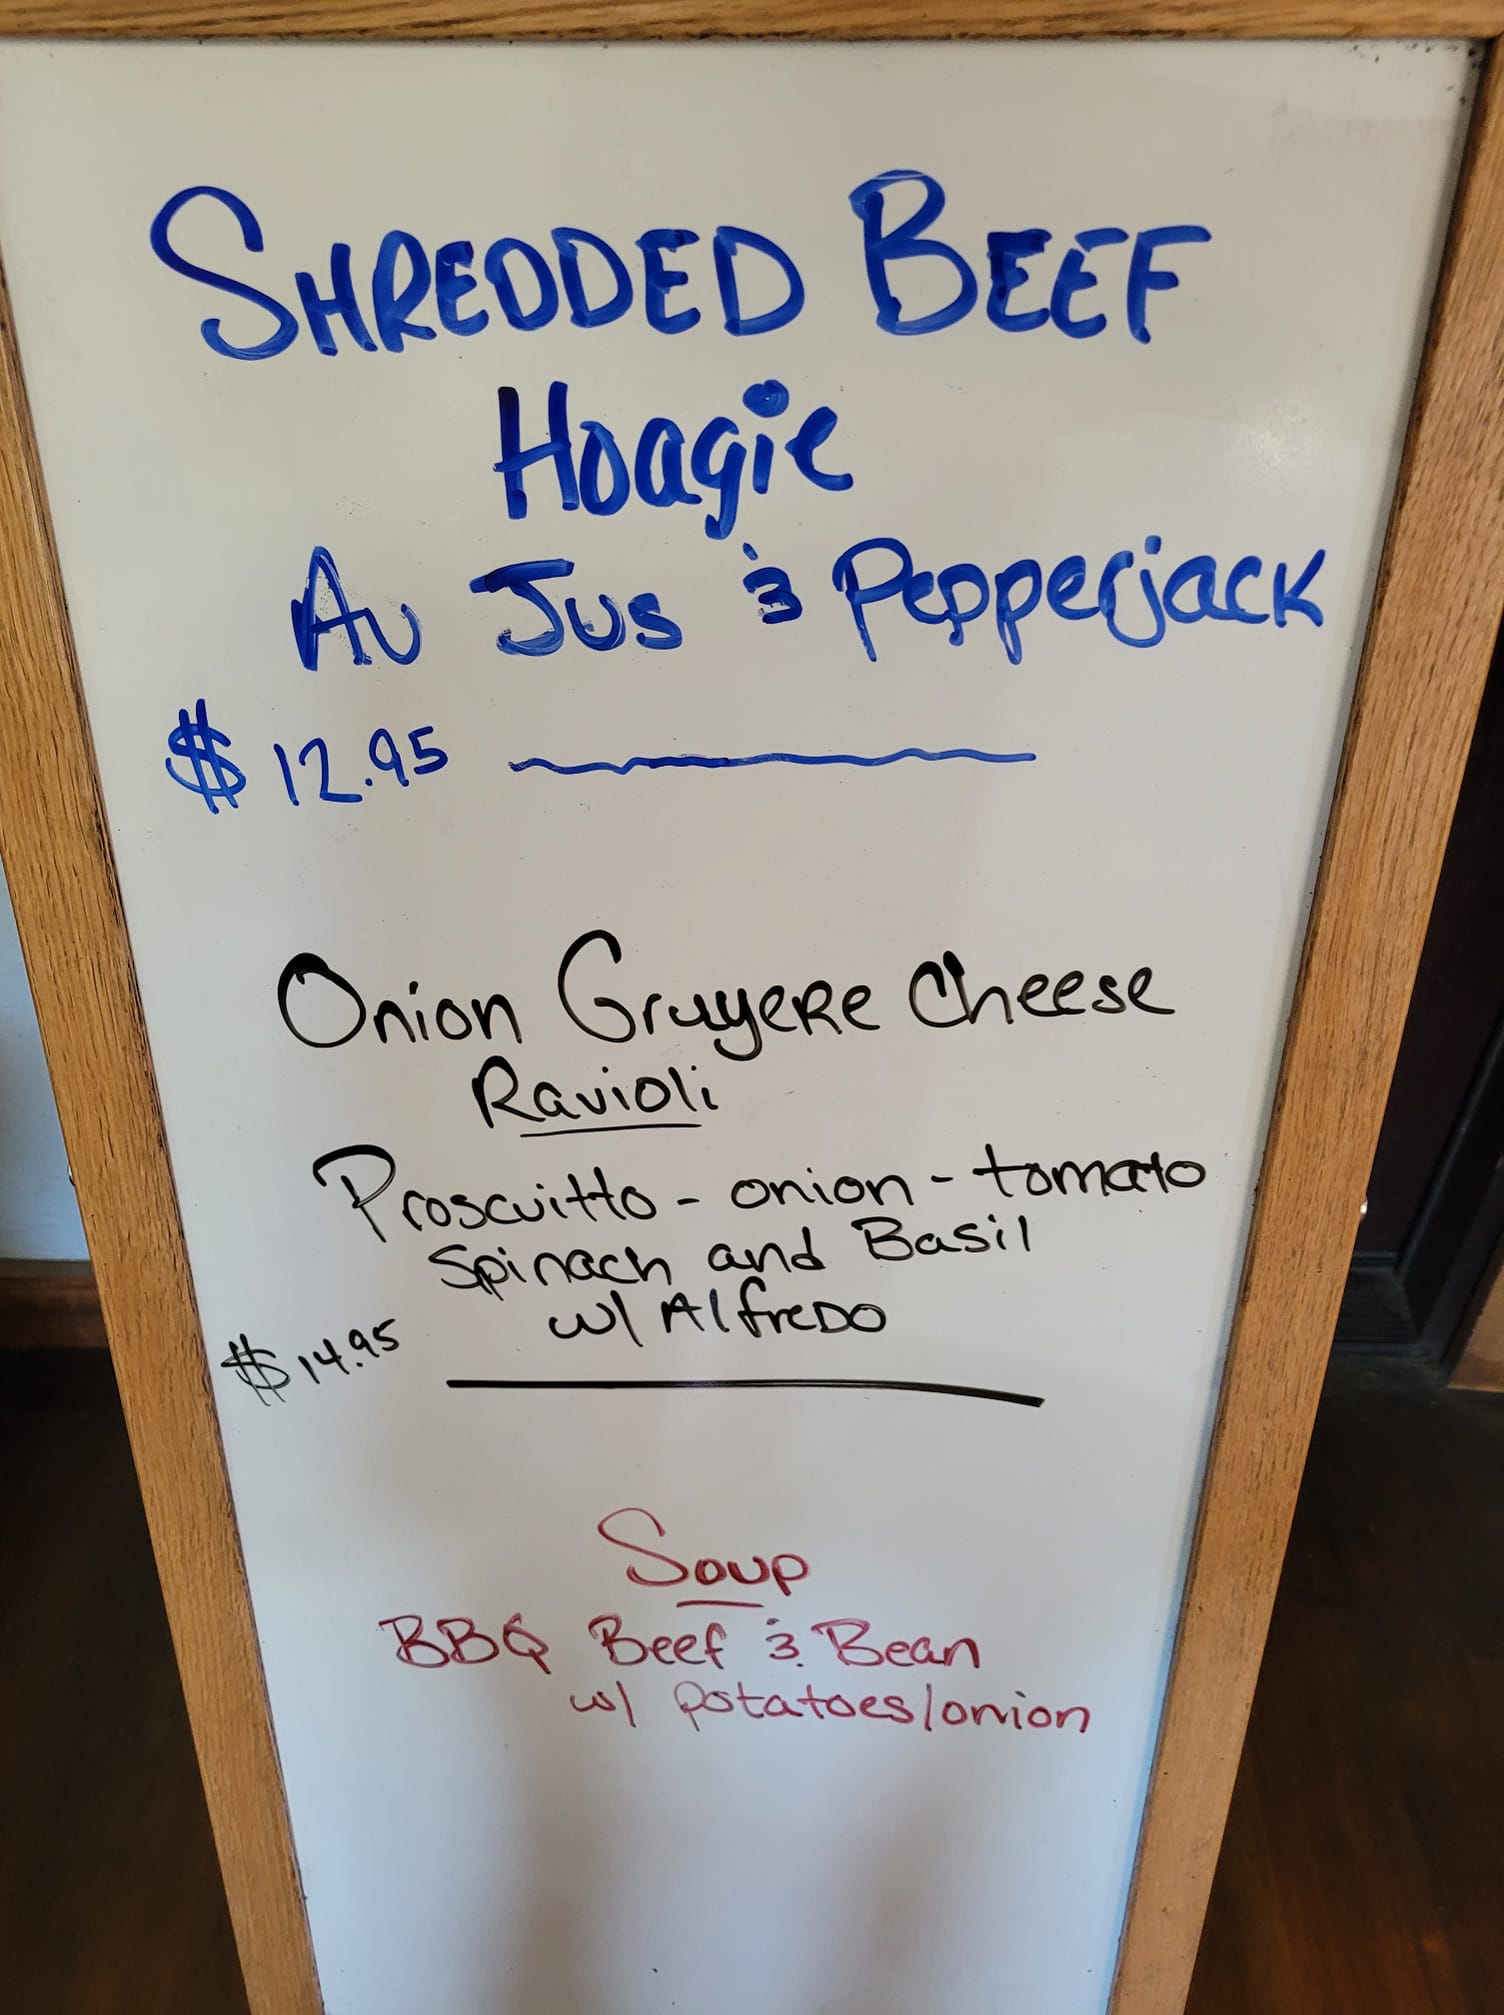 SHREDDED BEEF
Hoagie
Au Jus & Pepperjack
$ 12.95
Onion Gruyere Cheese
Ravioli
Proscuitto - onion - tomato
Spinach and Basil
w/ Alfredo
$ 14.95
Soup
BBQ Beef & Bean
w/ potatoes/onion